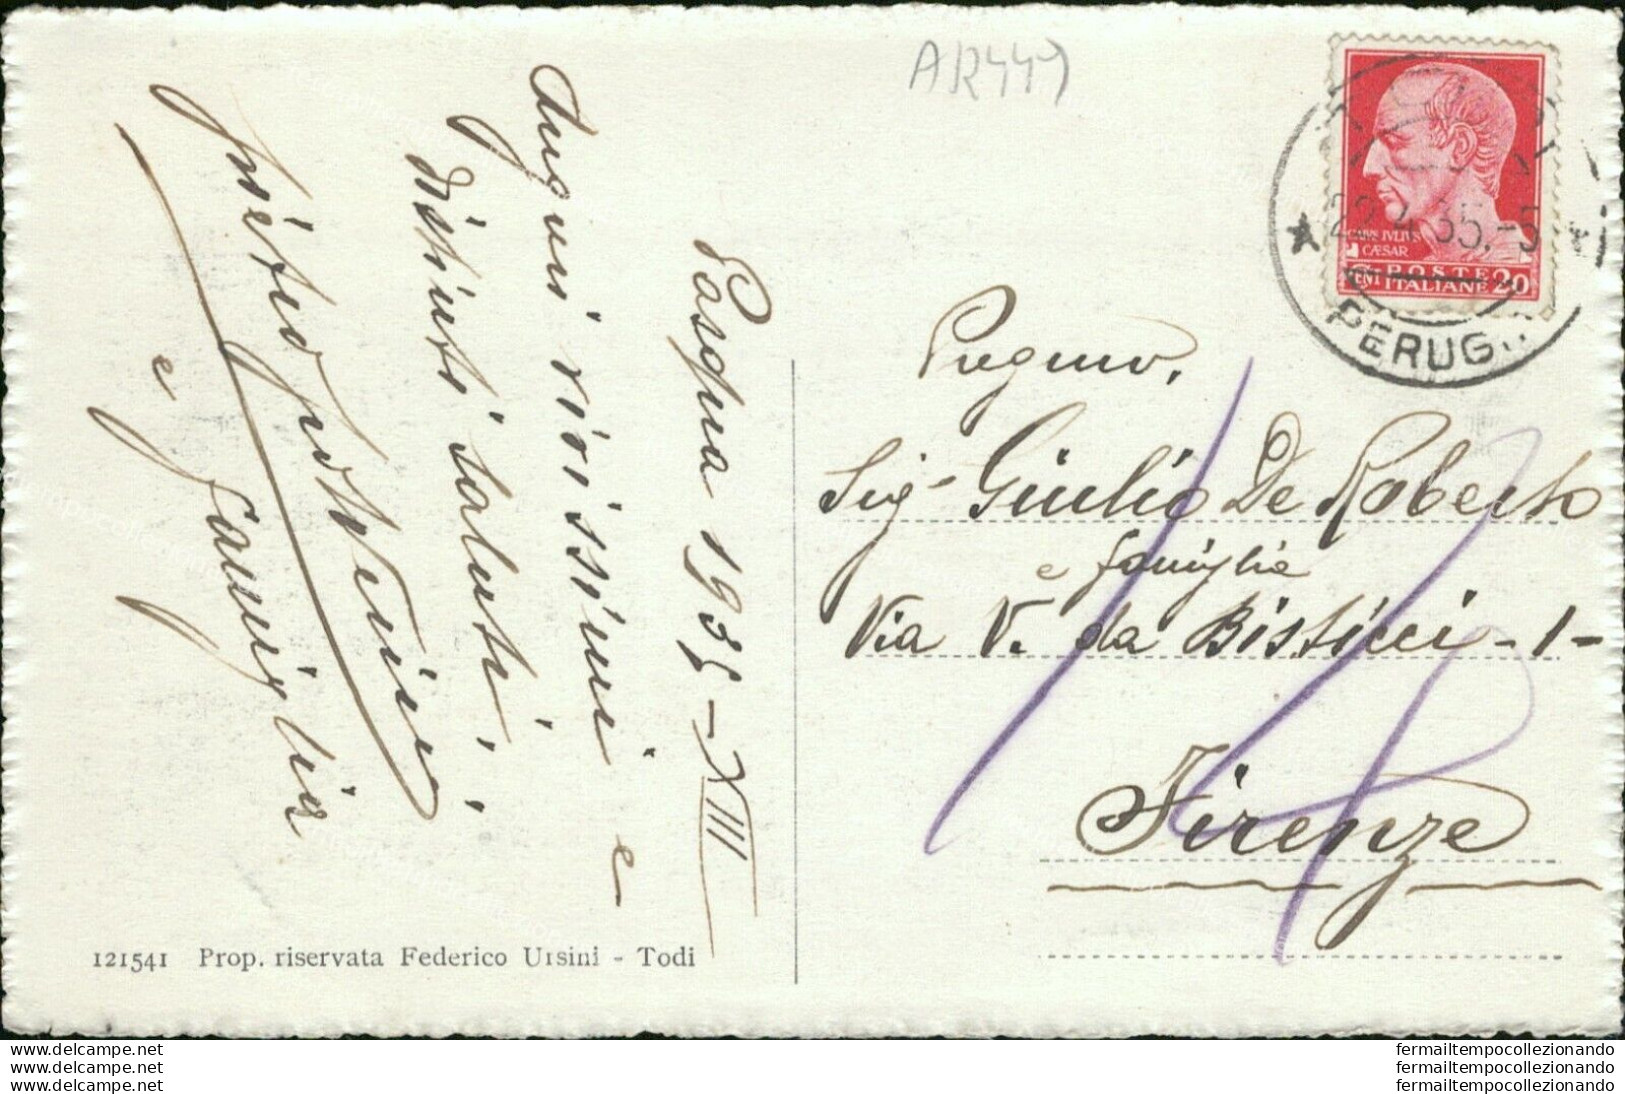 AR449
Pasqua 1935 - XIII
Auguri vivissimi e
distinti saluti,
e Famiglia
121541 Prop. riservata Federico Ursini - Todi
CAIVS IVLIVS
CAESAR
POSTE
CENT ITALIANE 20
22.4.35.-5
PERUG
Pregmo.
Sig. Giulio De Roberto
e famiglia
Via V. da Bisticci - 1 -
Firenze
www.delcampe.net
www.delcampe.net
www.delcampe.net
fermailtempocollezionando
fermailtempocollezionando
fermailtempocollezionando